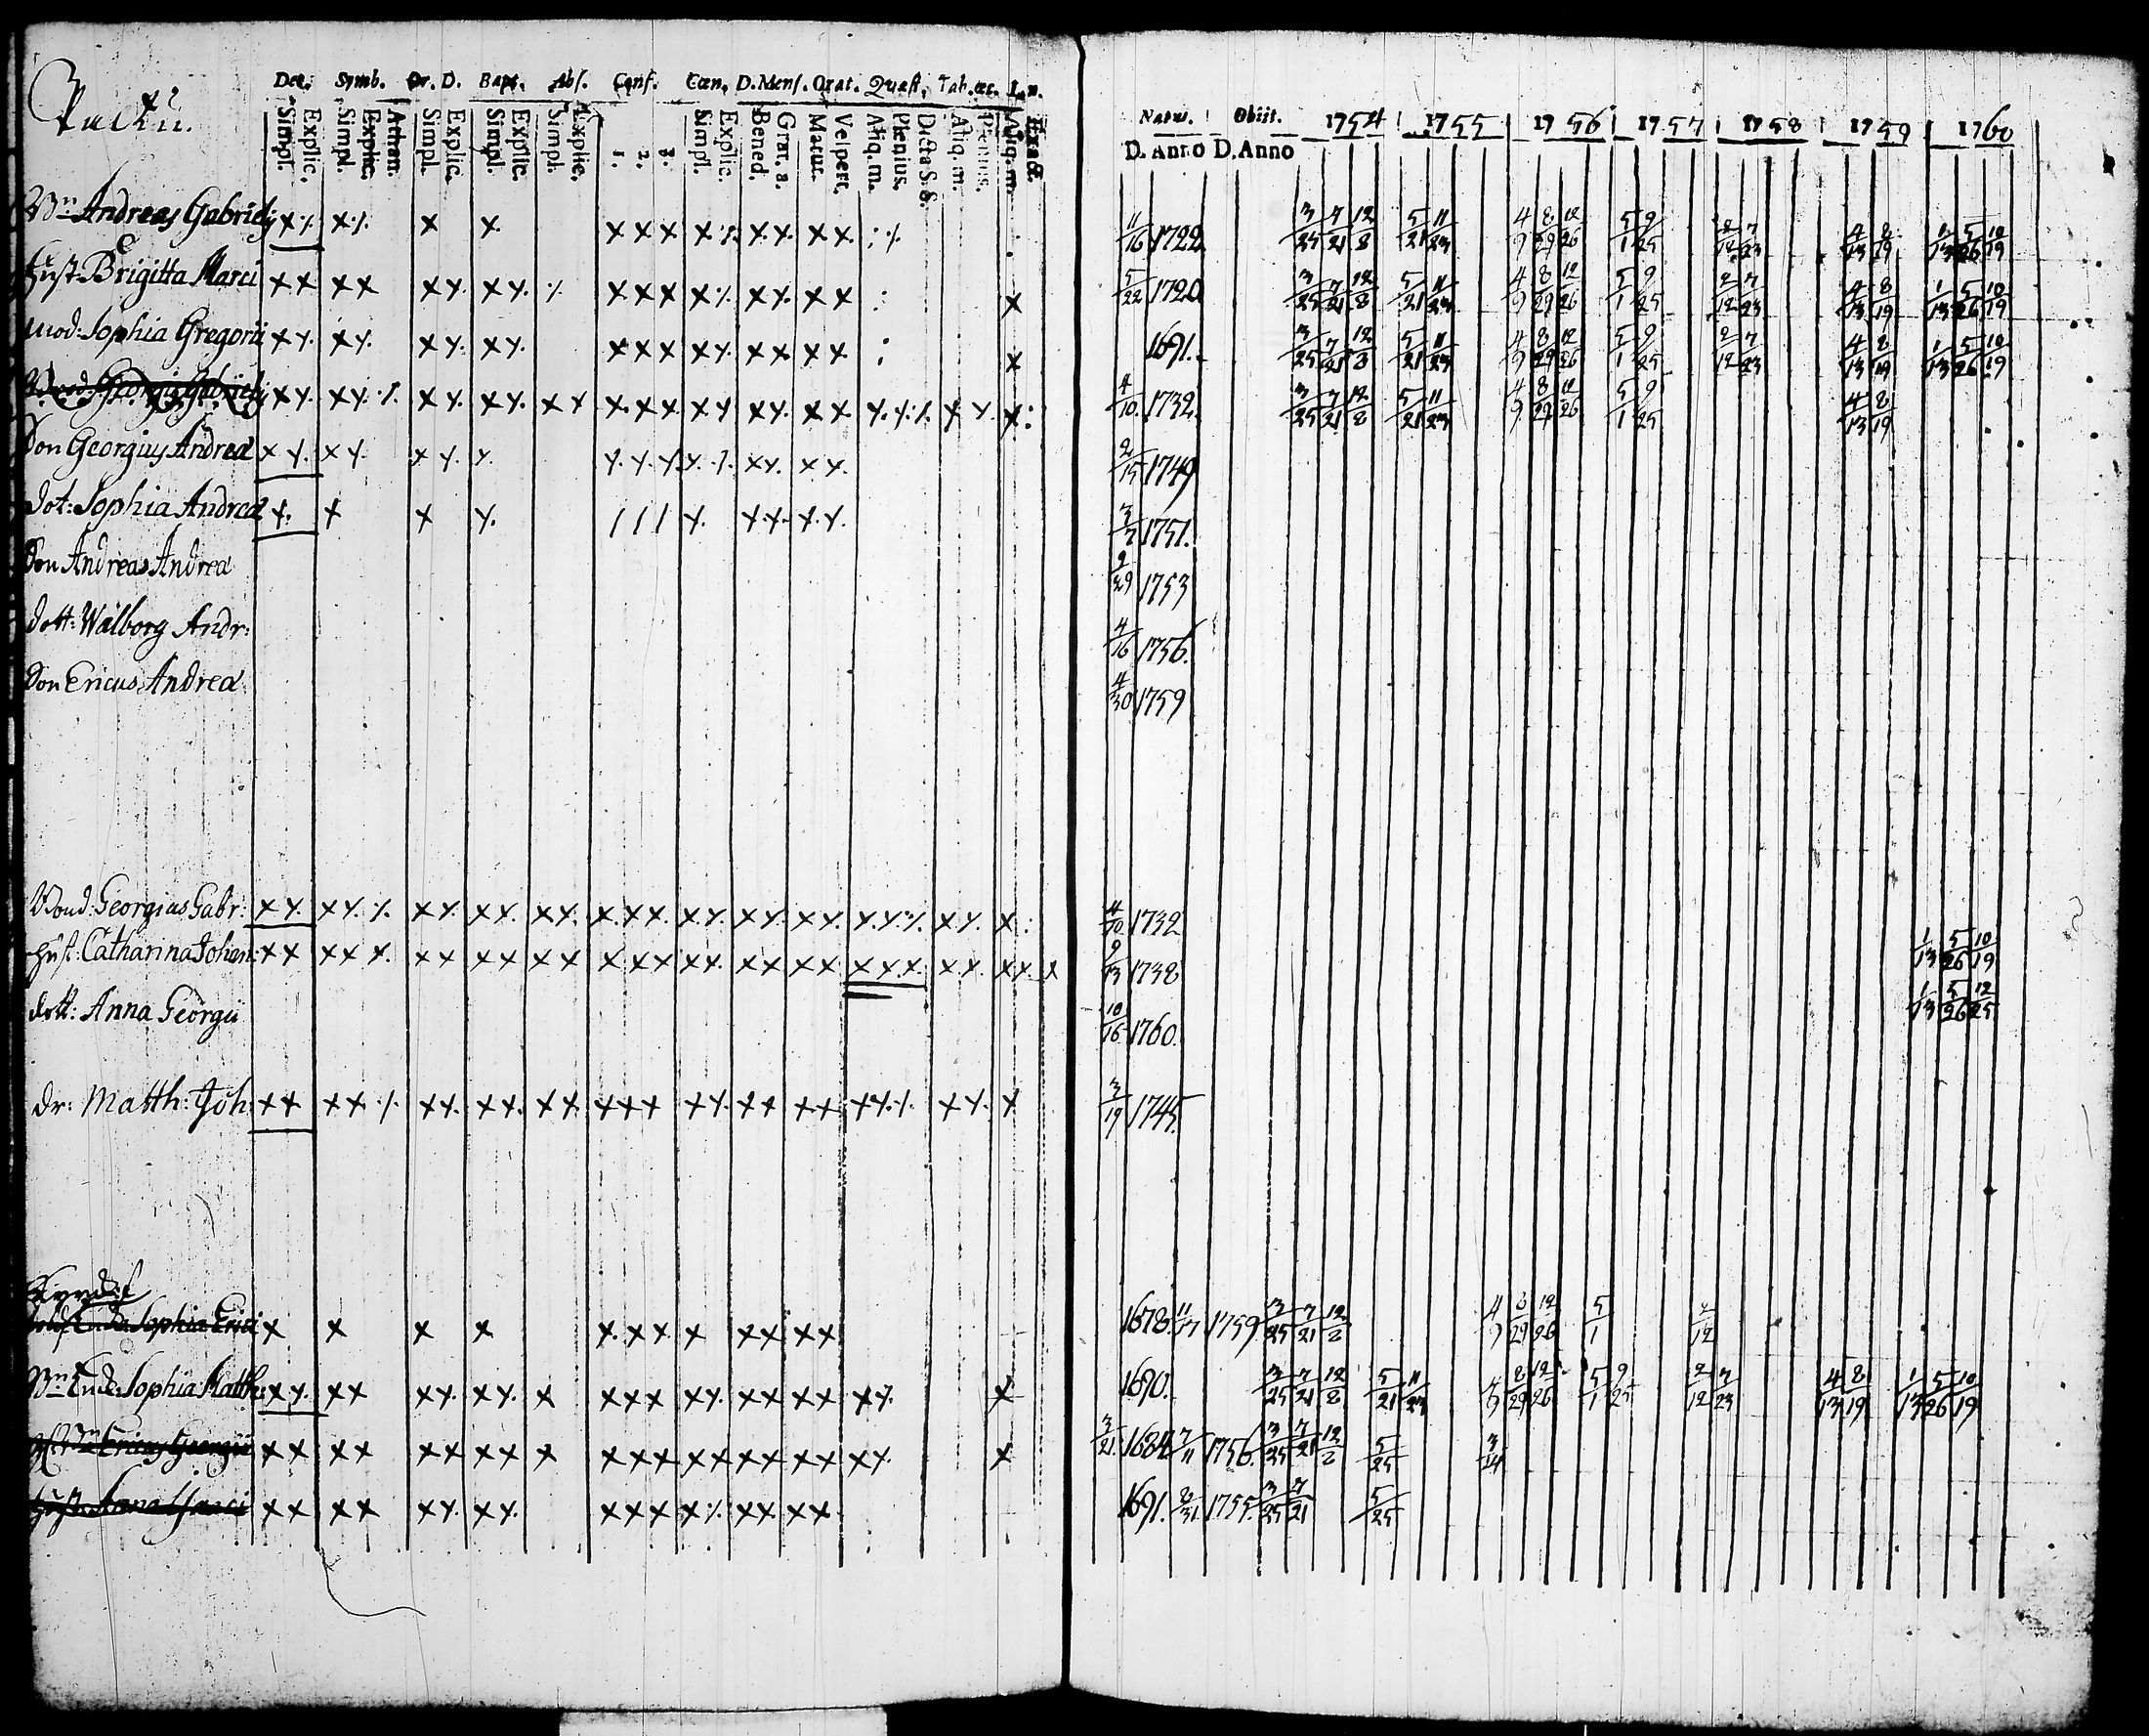 Dec. Symb. Or. D. Bapt. Abs. Conf. Cœn. D. Mens. Orat. Quæst. Tab. œc.
Simpl. Explic. Simpl. Explic. Athan. Simpl. Explic. Simpl. Explic. Simpl. Explic. 1. 2. 3. Simpl. Explic. Bened. Grat. a. Matut. Vespert. Aliq. m. Plenius. Dicta S. S. Aliq. m. Plenius. Aliq. m. Exact.
Natus. Obiit. 1754 1755 1756 1757 1758 1759 1760
D. Anno D. Anno
Andreas Gabriel x ⁒ x ⁒ x x x x x x ⁒ x x x x : ⁒ 11/16 1722 3/25 7/21 12/8 5/21 11/23 4/9 8/29 12/26 5/1 9/25 2/12 7/23 4/13 8/19 1/13 5/26 10/19
Hust. Brigitta Marci x x x x x y. x y. ⁒ x x x x ⁒ x y. x x : x 5/22 1720 3/25 7/21 12/8 5/21 11/23 4/9 8/29 12/26 5/1 9/25 2/12 7/23 4/13 8/19 1/13 5/26 10/19
mod: Sophia Gregorii x y. x y. x y. x y. x x x x y. x x x x : x 1691. 3/25 7/21 12/8 5/21 11/23 4/9 8/29 12/26 5/1 9/25 2/12 7/23 4/13 8/19 1/13 5/26 10/19
Georgius Gabriel x y. x y. ⁒ x y. x y. x x x x x x y x y. x x y. y. ⁒ x y. x : 4/10 1732. 3/25 7/21 12/8 5/21 11/23 4/9 8/29 12/26 5/1 9/25 4/13 8/19
Son Georgius Andreæ x y. x y. x y. y. y. y. y. y. ⁒ x y. x y. 2/15 1749
dot: Sophia Andreæ x. x x y. / / / y. y. y. y. y. 3/7 1751.
Son Andreas Andreæ 9/29 1753
dott: Walborg Andr: 4/16 1756.
Son Ericus Andreæ 4/30 1759
Georgius Gabr: x y. x y. ⁒ x y. x y. x y. x x x x y. x y. x y. y. y. ⁒ x y. x : 4/10 1732
hust. Catharina Johan: x x x x x. x x x x x x x x x x x. x x x x x x x. x x. x x. x 9/13 1738 1/13 5/26 10/19
dott: Anna Georgii 10/16 1760. 1/13 5/26 12/25
dr: Matth: Joh: x x x x ⁒ x y. x y. x x x x x x y. x x x x x y. ⁒ x y. x 3/19 1745
Sophia Erici x x x x x x x x x x x x 1678. 11/17 1759 3/25 7/21 12/2 4/9 8/29 12/26 5/1 2/12
Enk. Sophia Matth: x y. x x x y. x y. x x x x x y. x x x x x y. x 1690. 3/25 7/21 12/8 5/21 11/23 4/9 8/29 12/26 5/1 9/25 2/12 7/23 4/13 8/19 1/13 5/26 10/19
Ericus Georgii x x x x x x x x x x x x x x x x x x x y. x 3/21. 1684 7/11 1756. 3/25 7/21 12/2 5/25 3/14
hust. Anna x x x x x y. x y. x x x x ⁒ x x x x 1691. 8/31 1755. 3/25 7/21 5/25